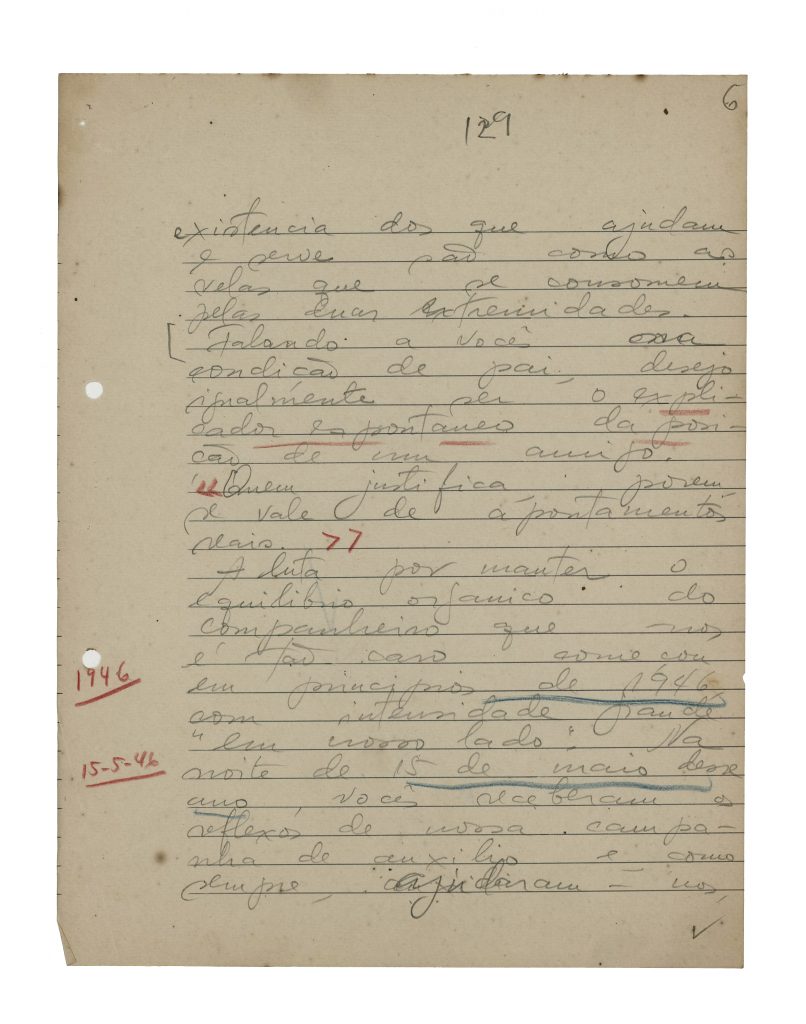 6
129
existencia dos que ajudam
e serve são como as
velas que se consomem
pelas duas extremidades.
[ Falando a vocês na
condição de pai, desejo
igualmente ser o expli-
cador espontaneo da posi-
ção de um amigo.
"Quem justifica, porem,
se vale de apontamentos
reais. >>
A luta por manter o
equilibrio organico do
companheiro que nos
é tão caro começou
1946
em principios de 1946,
com intensidade grande
"em nosso lado". Na
15-5-46
noite de 15 de maio desse
ano, vocês receberam os
reflexos de nossa campa-
nha de auxilio e, como
sempre, ajudaram-nos,